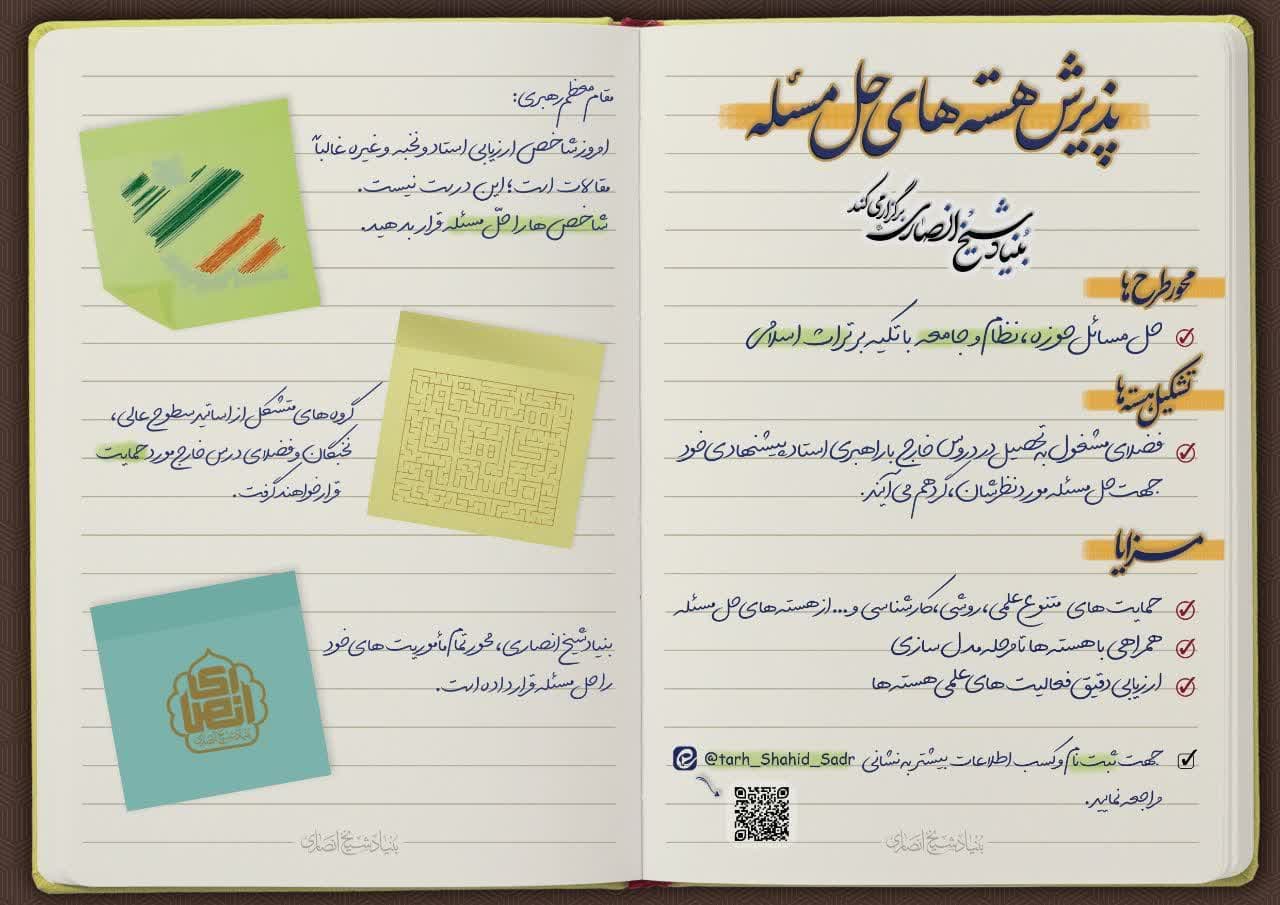 پذیرش هسته های حل مسئله
بنیاد شیخ انصاری برگزار می کند
محور طرح ها
حل مسائل حوزه، نظام و جامعه با تکیه بر تراث اسلامی
تشکیل هسته ها
فضلای مشغول به تحصیل در دروس خارج با راهبری استاد پیشنهادی خود
جهت حل مسئله مورد نظرشان، گرد هم می آیند.
مزایا
حمایت های متنوع علمی، روشی، کارشناسی و... از هسته های حل مسئله
همراهی با هسته ها تا مرحله مدل سازی
ارزیابی دقیق فعالیت های علمی هسته ها
جهت ثبت نام و کسب اطلاعات بیشتر به نشانی @tarh_Shahid_Sadr
مراجعه نمایید.
بنیاد شیخ انصاری
مقام معظم رهبری:
امروز شاخص ارزیابی استاد و نخبه و غیره غالباً
مقالات است؛ این درست نیست.
شاخص ها را حلّ مسئله قرار بدهید.
گروه های متشکل از اساتید سطوح عالی،
نخبگان و فضلای درس خارج مورد حمایت
قرار خواهند گرفت.
بنیاد شیخ انصاری، محور تمام مأموریت های خود
را حل مسئله قرار داده است.
انصاری
بنیاد شیخ انصاری
بنیاد شیخ انصاری